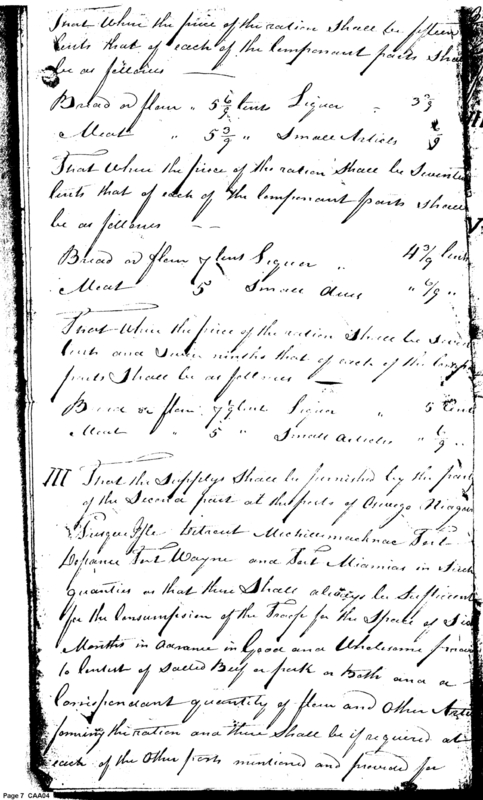 That When the price of the ration Shall be fifteen
Cents that of each of the Componant parts Shall
be as follows —
Bread or flour " 5 6/9 Cents Liquor " 3 3/9
Meat " 5 3/9 " Small Articles 6/9
That When the price of the ration Shall be Seventeen
Cents that of each of the Componant parts Shall
be as follows —
Bread or flour 7 Cents Liquor " 4 3/9 Cents
Meat 5 Small " 6/9 "
That When the price of the ration Shall be
Cents and Seven ninths that of each of the
parts Shall be as follows —
Bread or flour 7 Cents Liquor " 5 Cents
Meat " 5 " Small articles " 6/9 "
III That the Supplys Shall be furnished by the part
of the Second part at the posts of Oswego Niagara
Presque Isle Detroit Michilimacknac Fort
Defiance Fort Wayne and Fort Miamias in Such
quanties as that there Shall always be Sufficient
for the Consumpsion of the Troops for the Space of Six
Months in advance in Good and Wholesome
to Consist of Salted Beef or pork or Both and a
Correspondant quantity of flour and Other Arti
forming the ration and there Shall be if required at
each of the Other posts mentioned and provided for
Page 7 CAA04